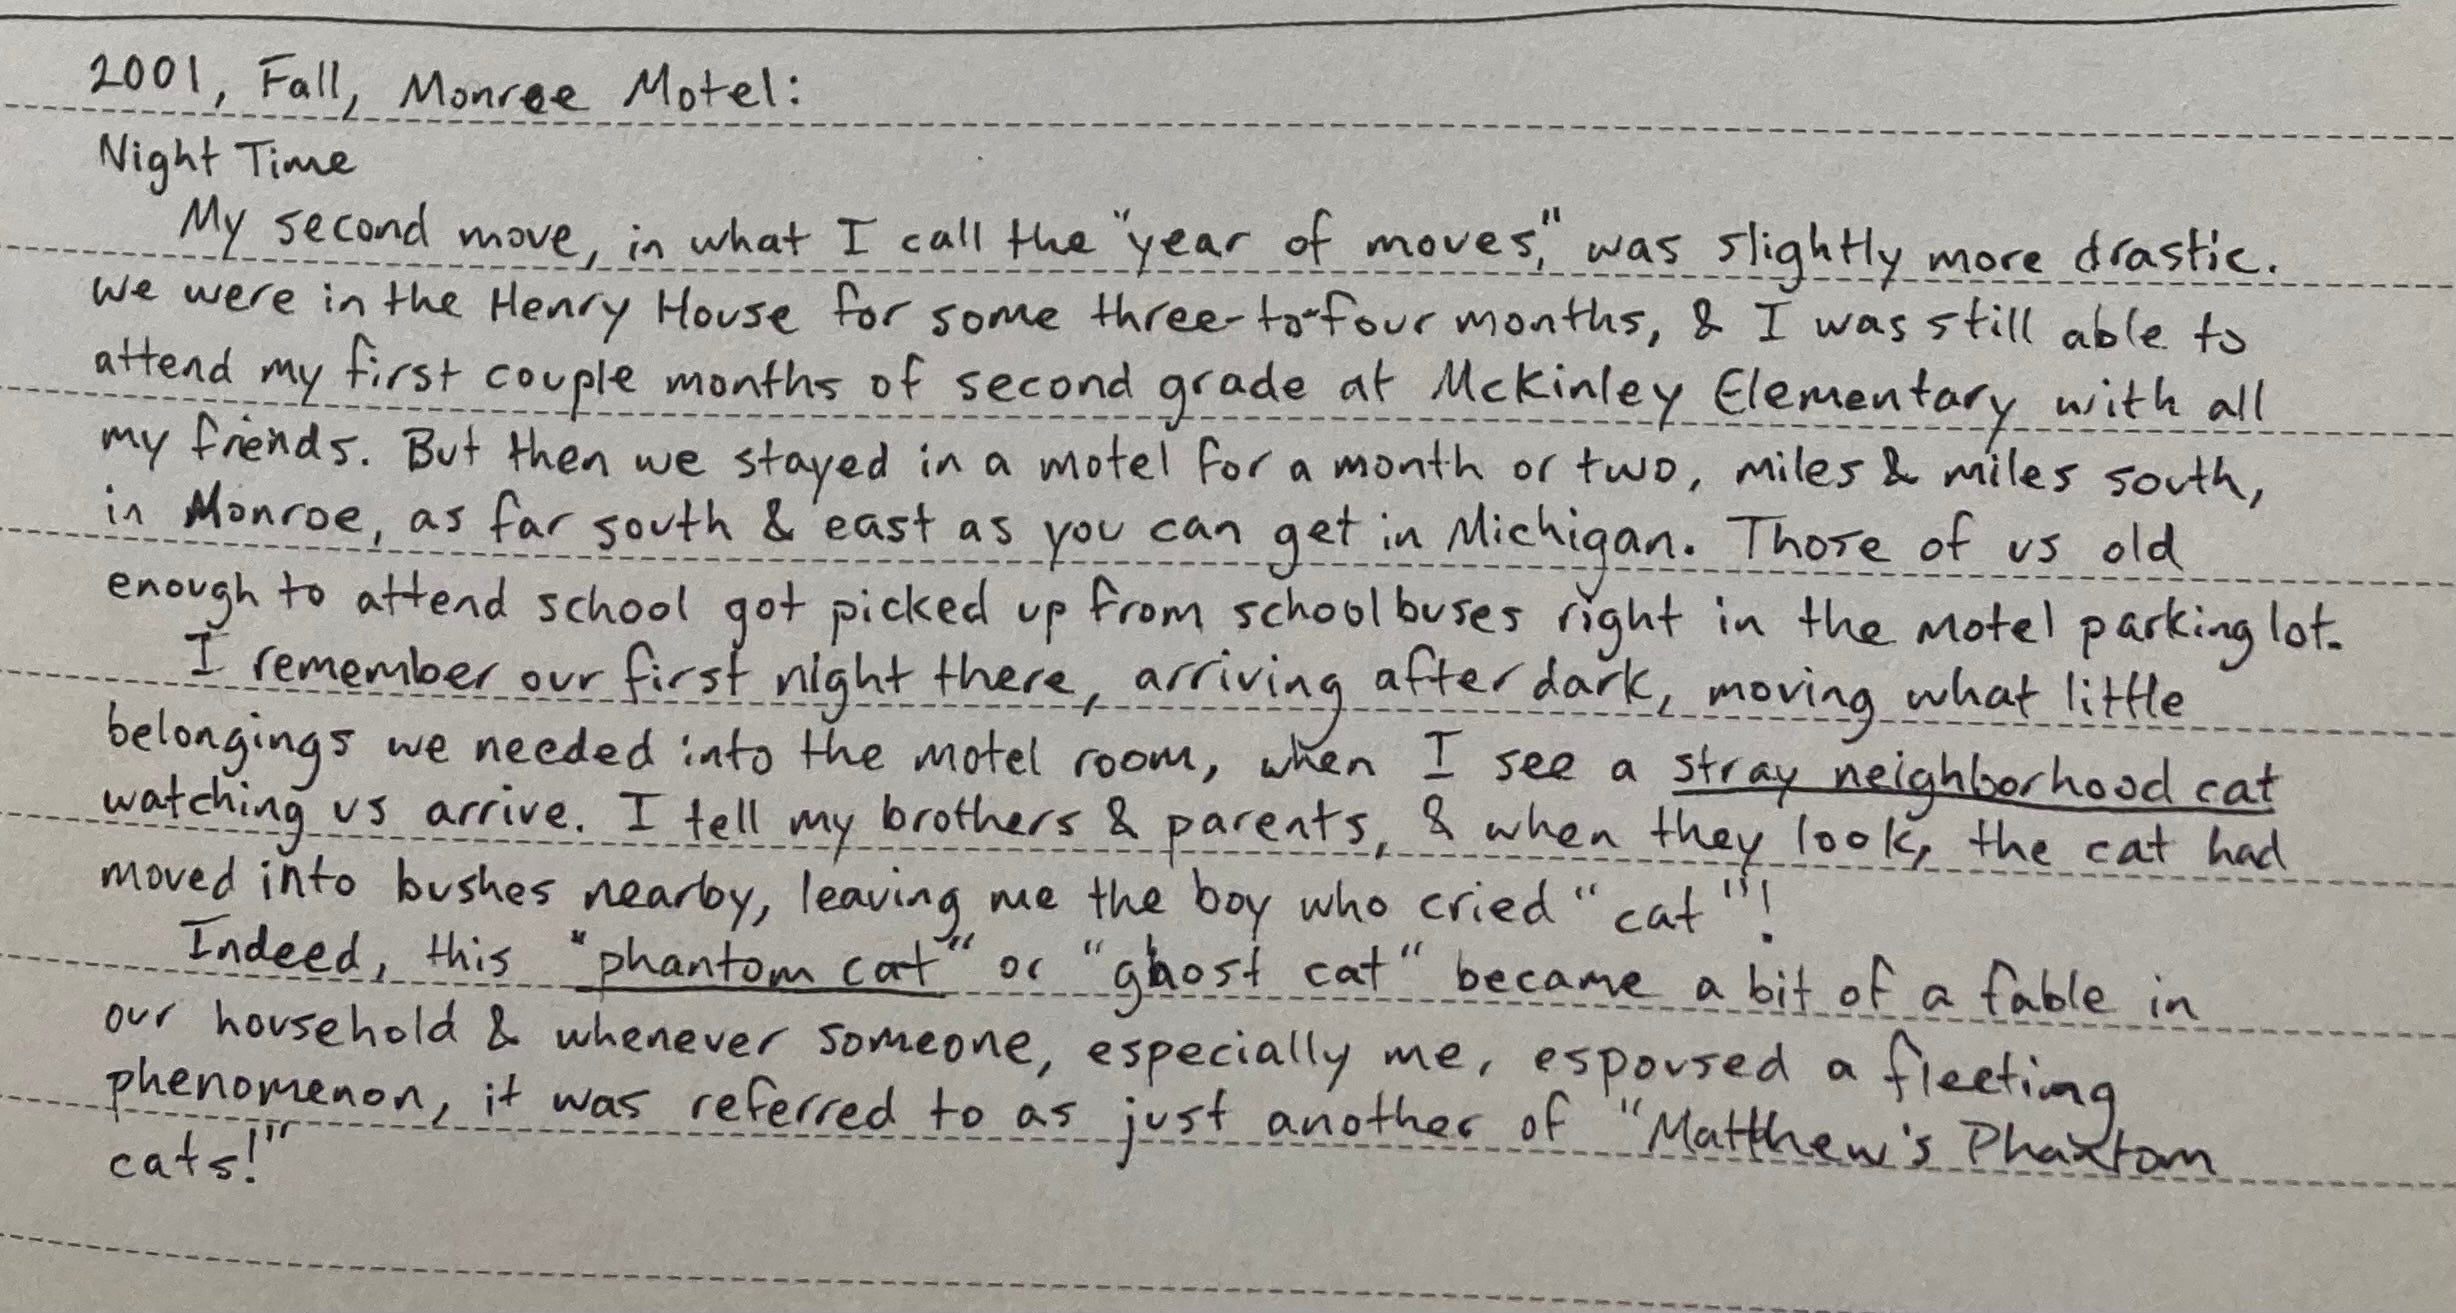 2001, Fall, Monroe Motel:
Night Time
My second move, in what I call the "year of moves," was slightly more drastic.
We were in the Henry House for some three-to-four months, & I was still able to
attend my first couple months of second grade at McKinley Elementary with all
my friends. But then we stayed in a motel for a month or two, miles & miles south,
in Monroe, as far south & east as you can get in Michigan. Those of us old
enough to attend school got picked up from school buses right in the motel parking lot.
I remember our first night there, arriving after dark, moving what little
belongings we needed into the motel room, when I see a stray neighborhood cat
watching us arrive. I tell my brothers & parents, & when they look, the cat had
moved into bushes nearby, leaving me the boy who cried "cat"!
Indeed, this "phantom cat" or "ghost cat" became a bit of a fable in
our household & whenever someone, especially me, espoused a fleeting
phenomenon, it was referred to as just another of "Matthew's Phantom
cats!"